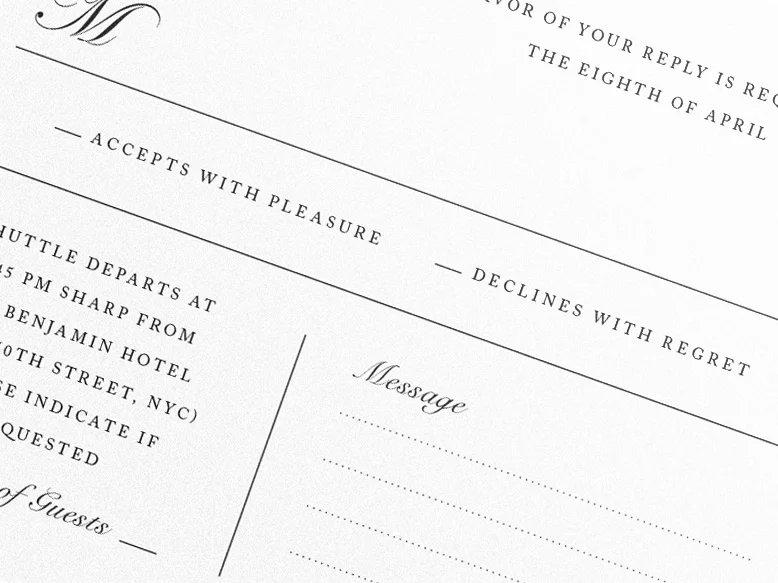 M
OF YOUR REPLY IS
THE EIGHTH OF APRIL
— ACCEPTS WITH PLEASURE
— DECLINES WITH REGRET
DEPARTS AT
PM SHARP FROM
BENJAMIN HOTEL
STREET, NYC)
INDICATE IF
of Guests —
Message